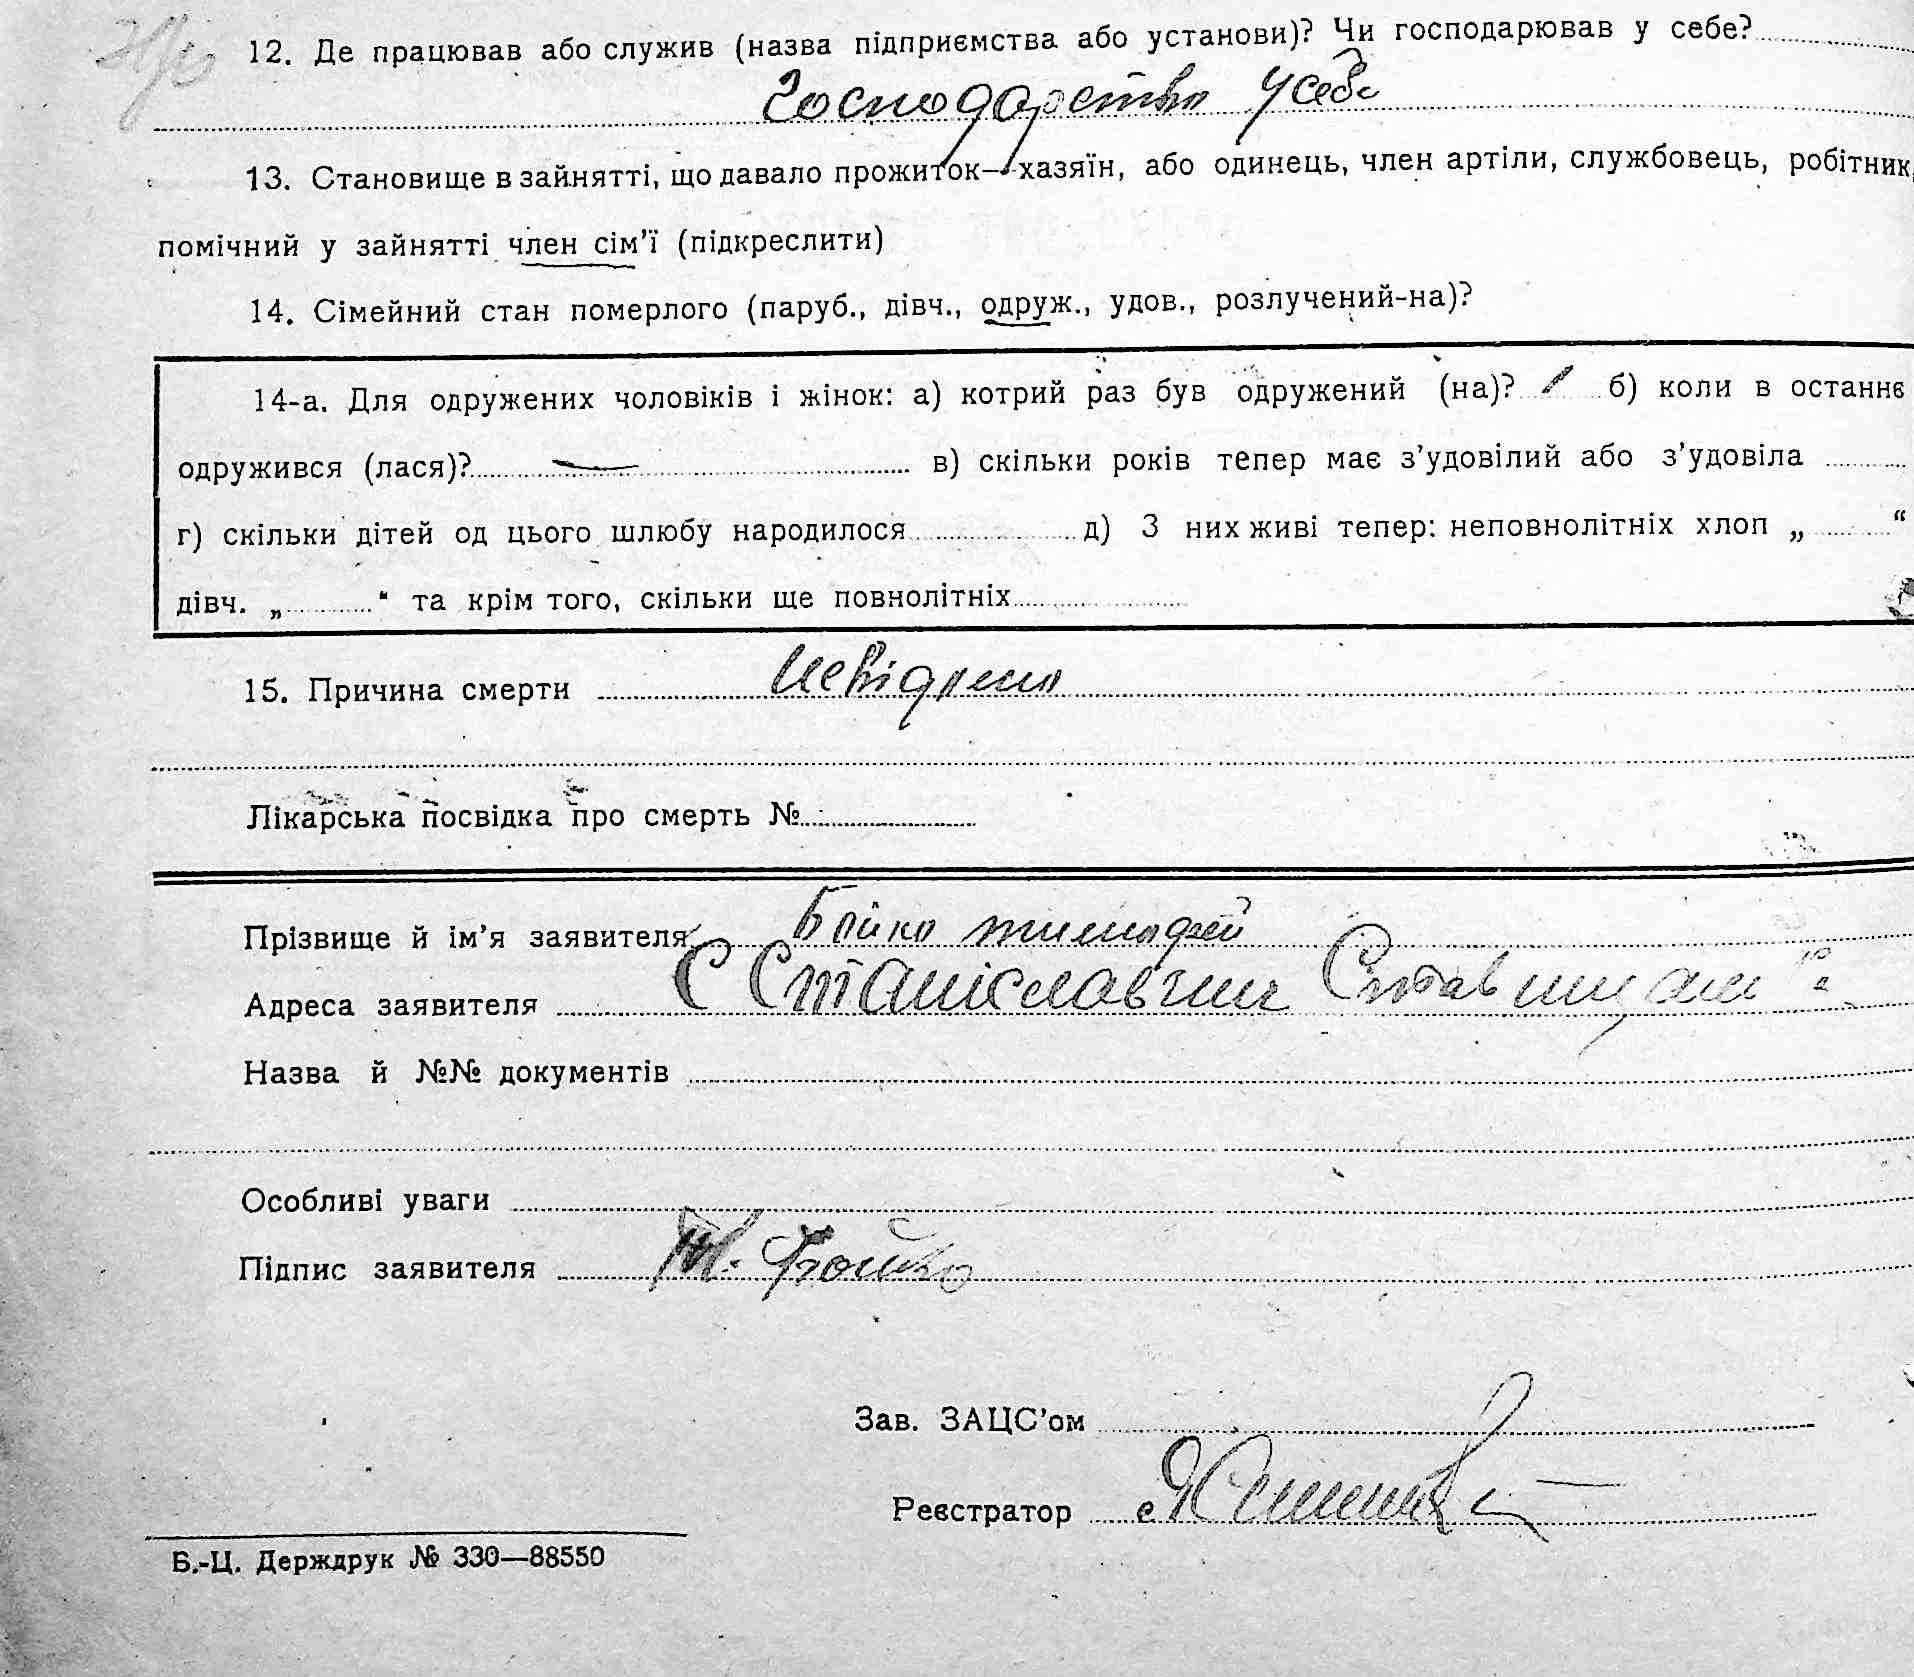 12. Де працював або служив (назва підприємства або установи)? Чи господарював у себе?
Господарство у себе
13. Становище в зайнятті, що давало прожиток—хазяїн, або одинець, член артіли, службовець, робітник,
помічний у зайнятті член сім'ї (підкреслити)
14. Сімейний стан померлого (паруб., дівч., одруж., удов., розлучений-на)?
14-а. Для одружених чоловіків і жінок: а) котрий раз був одружений (на)? 1 б) коли в останнє
одружився (лася)? — в) скільки років тепер має з'удовілий або з'удовіла
г) скільки дітей од цього шлюбу народилося д) З них живі тепер: неповнолітніх хлоп „ “
дівч. „ “ та крім того, скільки ще повнолітніх
15. Причина смерти Невідома
Лікарська посвідка про смерть №
Прізвище й ім'я заявителя Бойко Тимофей
Адреса заявителя С Станіславчик
Назва й №№ документів
Особливі уваги
Підпис заявителя Т. Бойко
Зав. ЗАЦС'ом
Реєстратор
Б.-Ц. Держдрук № 330—88550